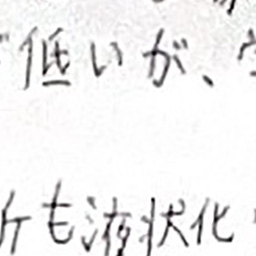 低いが、
も液状化